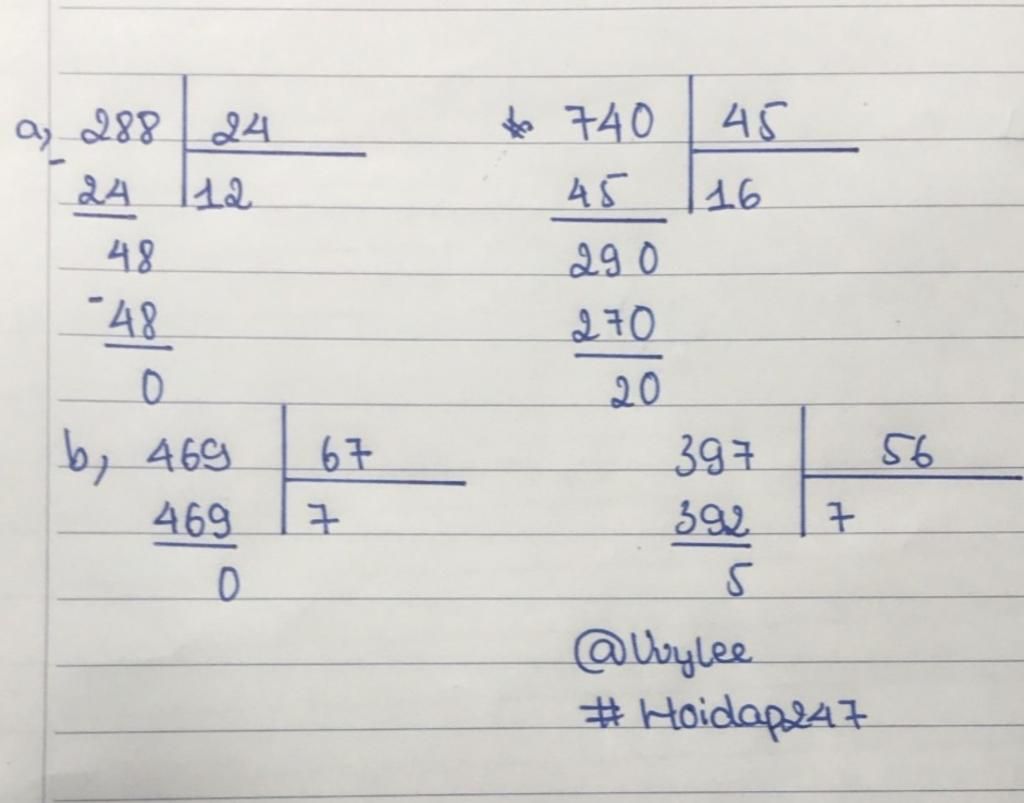 a, 288 24
- 24 12
48
- 48
0
740 45
45 16
290
270
20
b, 469 67
469 7
0
397 56
392 7
5
@Vvylee
# Hoidap247